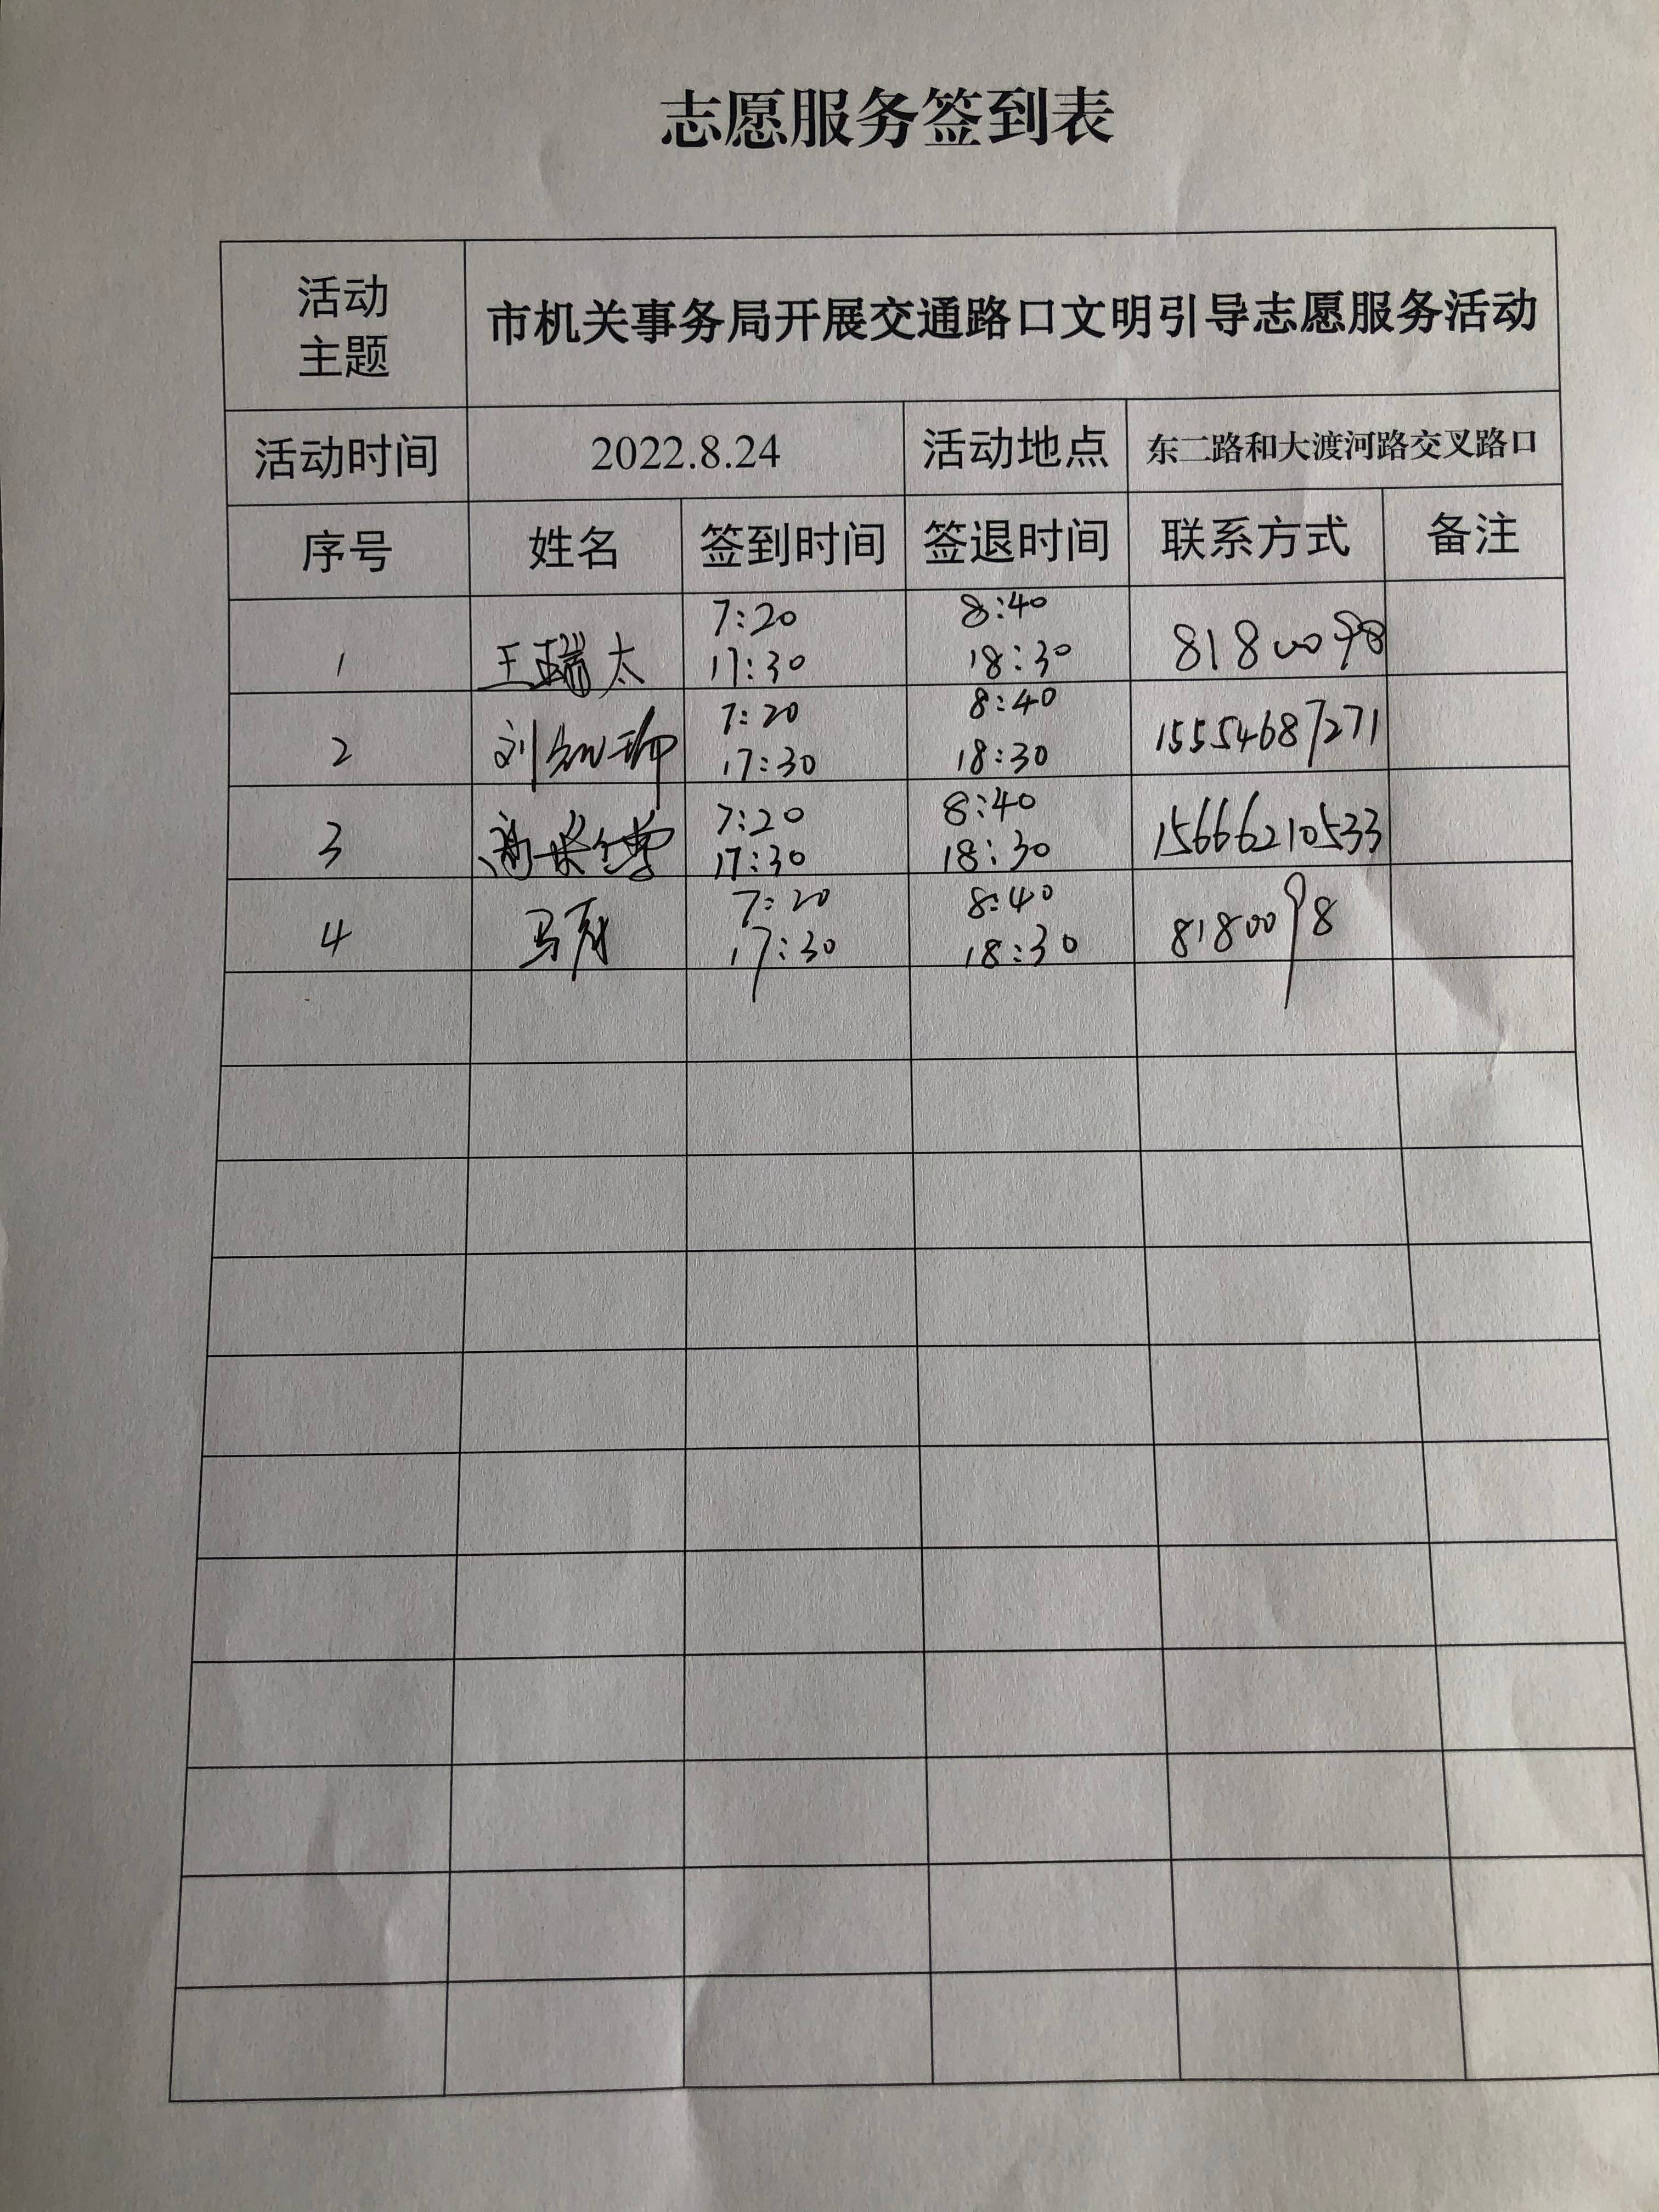 志愿服务签到表
活动
主题
市机关事务局开展交通路口文明引导志愿服务活动
活动时间 2022.8.24 活动地点 东二路和大渡河路交叉路口
序号 姓名 签到时间 签退时间 联系方式 备注
1 王瑞太 7:20 8:40 8180098
17:30 18:30
2 刘 7:20 8:40 15554687271
17:30 18:30
3 7:20 8:40 15666210533
17:30 18:30
4 马 7:20 8:40 8180098
17:30 18:30